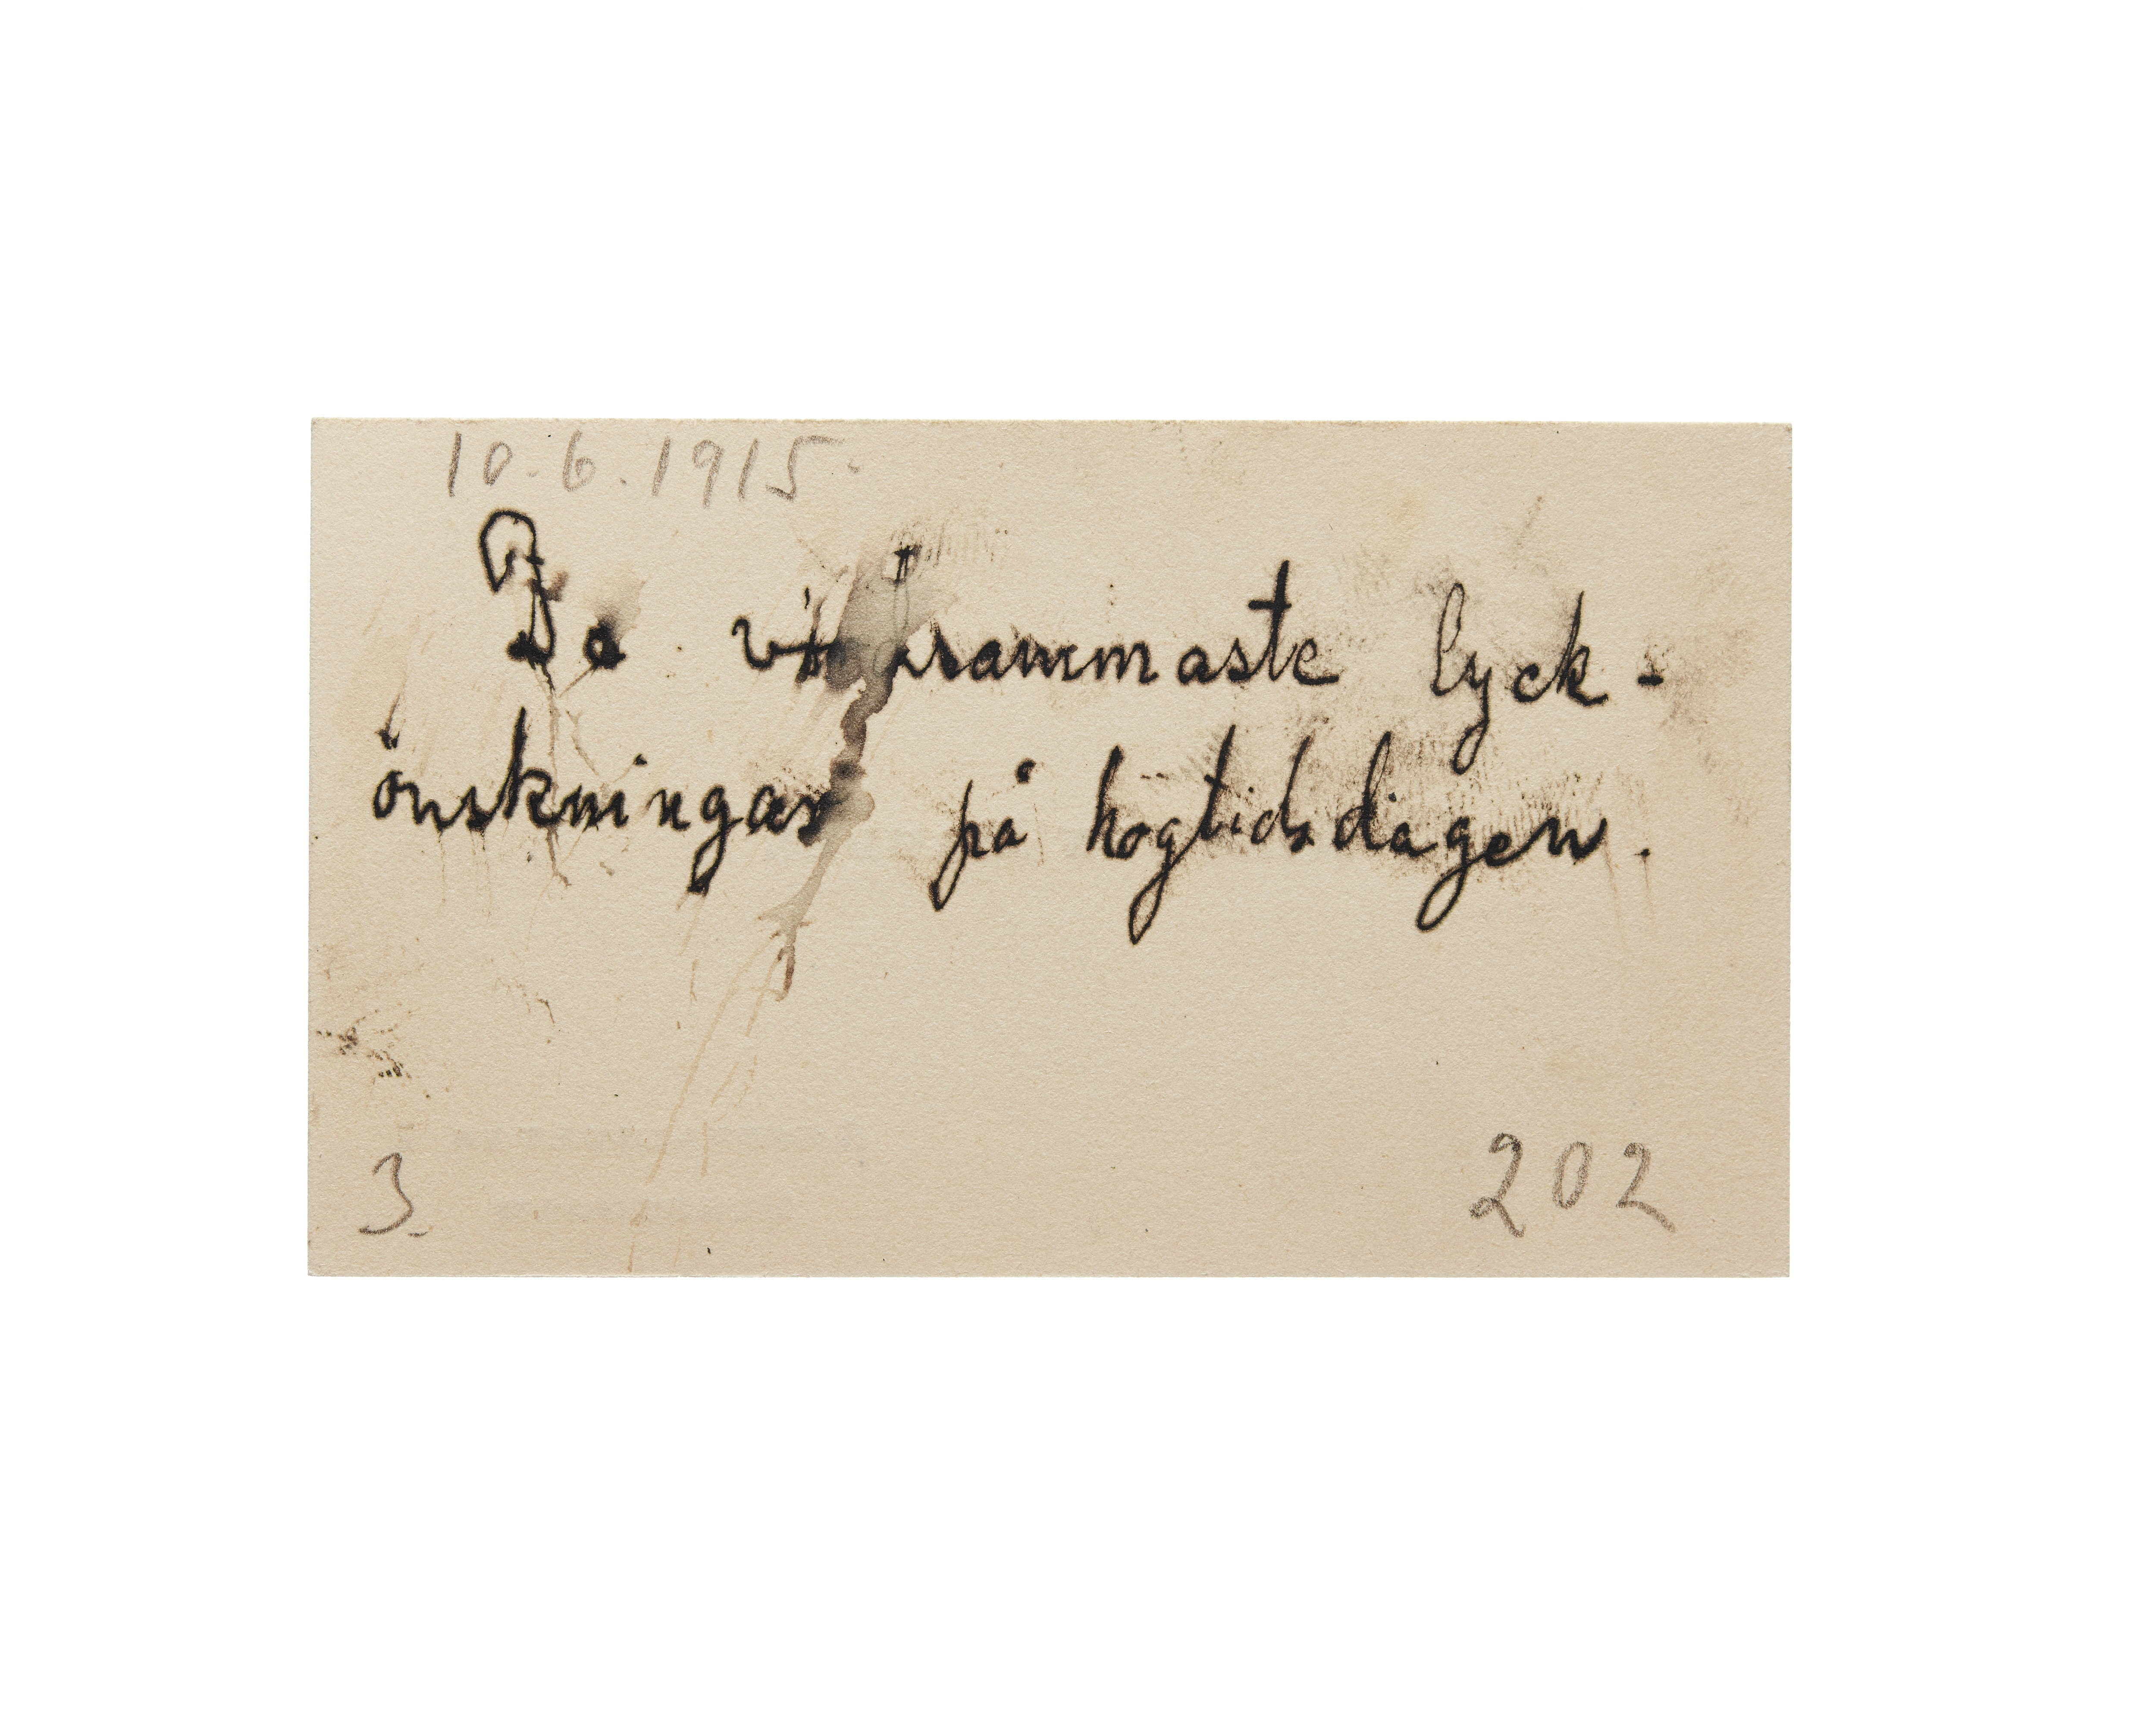 10.6.1915.
De vördsammaste lyck-
önskningar på högtidsdagen.
3.
202